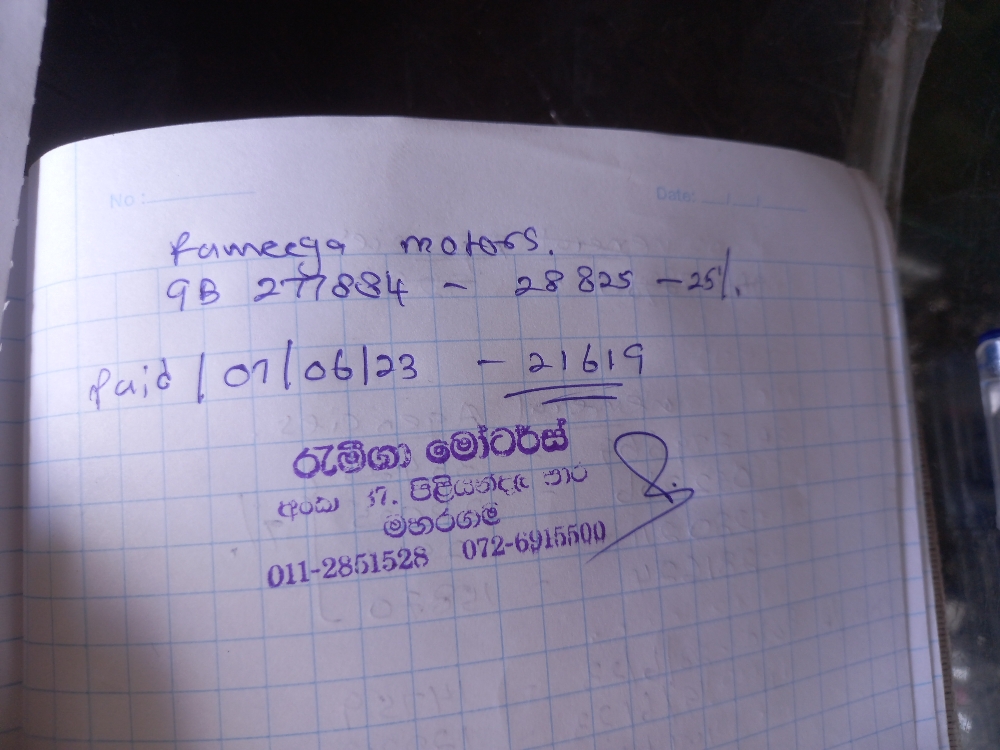 No:
Date: __/__/__
Rameega motors.
9B 277884 - 28825 - 25%.
Paid / 07/06/23 - 21619
රැමීගා මෝටර්ස්
අංක 37. පිළියන්දල පාර
මහරගම
011-2851528 072-6915500